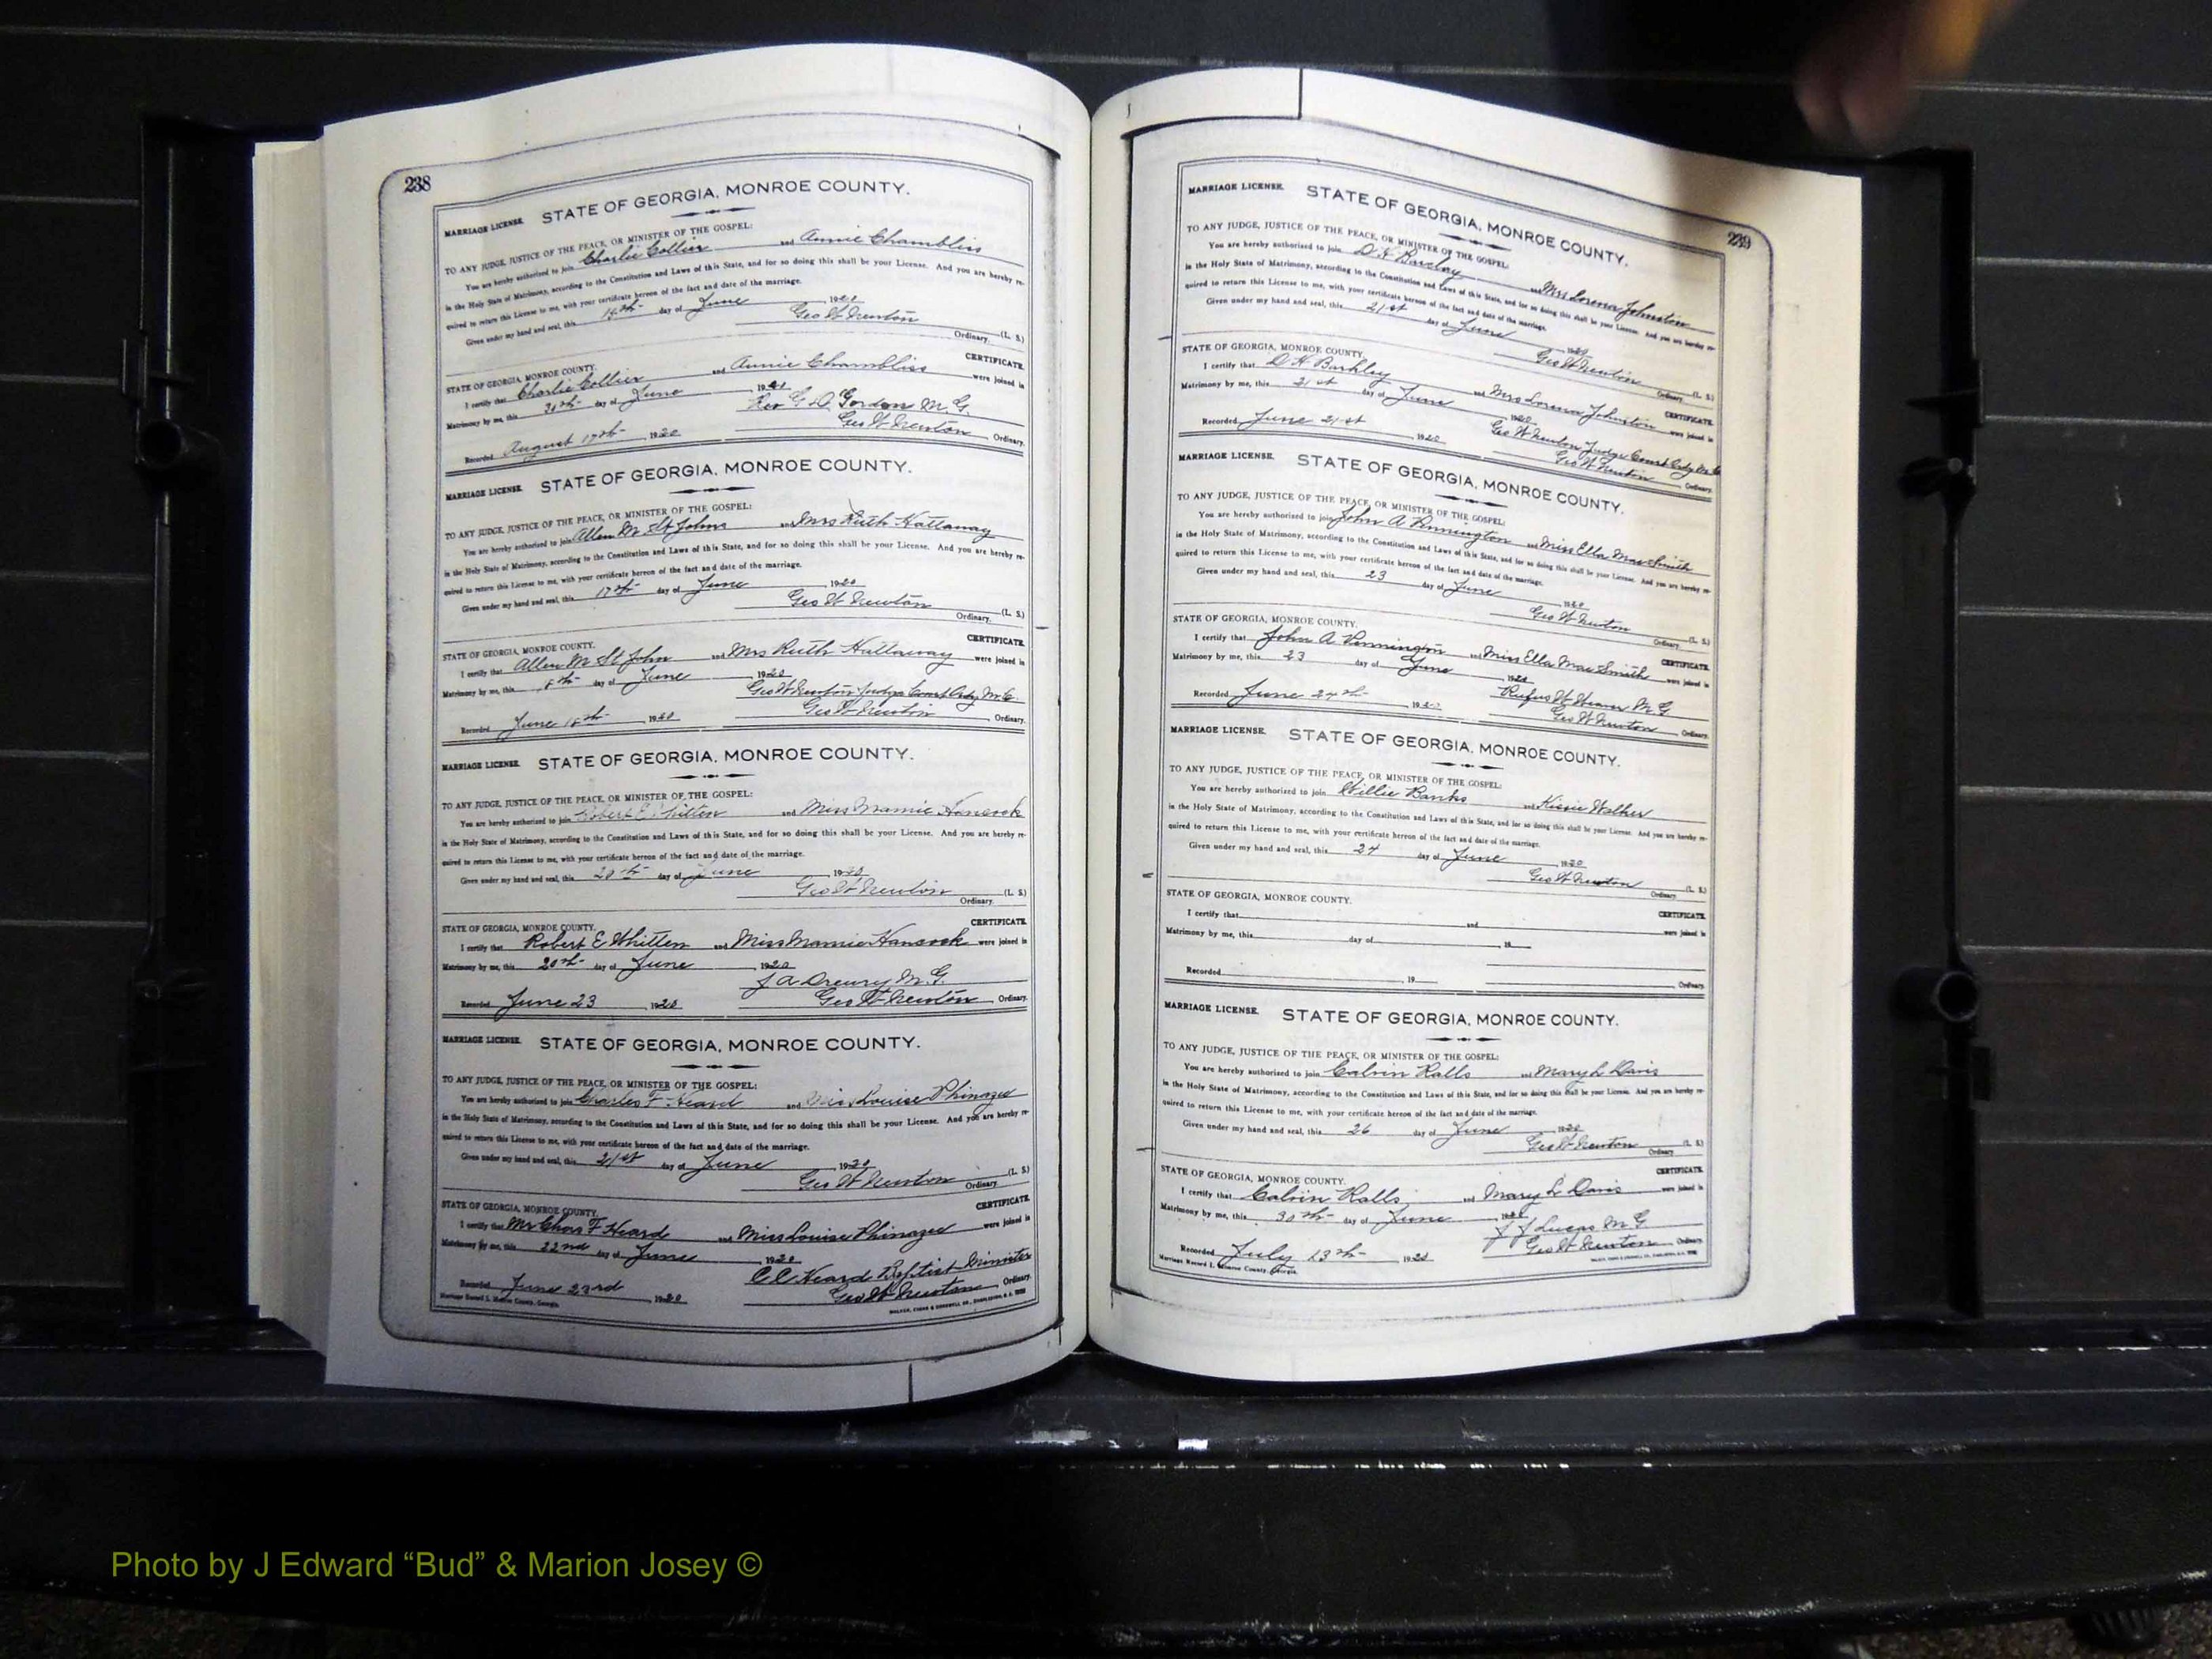 238
MARRIAGE LICENSE. STATE OF GEORGIA, MONROE COUNTY.
TO ANY JUDGE, JUSTICE OF THE PEACE, OR MINISTER OF THE GOSPEL:
You are hereby authorized to join Charlie Collier and Annie Chambliss
in the Holy State of Matrimony, according to the Constitution and Laws of this State, and for so doing this shall be your License. And you are hereby re-
quired to return this License to me, with your certificate hereon of the fact and date of the marriage.
Given under my hand and seal, this day of June 1920
Geo W Newton (L. S.)
Ordinary.
STATE OF GEORGIA, MONROE COUNTY. CERTIFICATE.
I certify that Charlie Collier and Annie Chambliss were joined in
Matrimony by me, this day of June 1920
Rev G D Gordon M. G.
Recorded August 17th 1920 Geo W Newton Ordinary.
MARRIAGE LICENSE. STATE OF GEORGIA, MONROE COUNTY.
TO ANY JUDGE, JUSTICE OF THE PEACE, OR MINISTER OF THE GOSPEL:
You are hereby authorized to join Allen M St Johns and Mrs Ruth Hattaway
in the Holy State of Matrimony, according to the Constitution and Laws of this State, and for so doing this shall be your License. And you are hereby re-
quired to return this License to me, with your certificate hereon of the fact and date of the marriage.
Given under my hand and seal, this 17th day of June 1920
Geo W Newton (L. S.)
Ordinary.
STATE OF GEORGIA, MONROE COUNTY. CERTIFICATE.
I certify that Allen M St John and Mrs Ruth Hattaway were joined in
Matrimony by me, this day of June 1920
Geo W Newton Judge Court Ordy M. C.
Recorded June 18th 1920 Geo W Newton Ordinary.
MARRIAGE LICENSE. STATE OF GEORGIA, MONROE COUNTY.
TO ANY JUDGE, JUSTICE OF THE PEACE, OR MINISTER OF THE GOSPEL:
You are hereby authorized to join Robert E Whitten and Miss Mamie Hancock
in the Holy State of Matrimony, according to the Constitution and Laws of this State, and for so doing this shall be your License. And you are hereby re-
quired to return this License to me, with your certificate hereon of the fact and date of the marriage.
Given under my hand and seal, this 20th day of June 1920
Geo W Newton (L. S.)
Ordinary.
STATE OF GEORGIA, MONROE COUNTY. CERTIFICATE.
I certify that Robert E Whitten and Miss Mamie Hancock were joined in
Matrimony by me, this 20th day of June 1920
J A Drewry M. G.
Recorded June 23 1920 Geo W Newton Ordinary.
MARRIAGE LICENSE. STATE OF GEORGIA, MONROE COUNTY.
TO ANY JUDGE, JUSTICE OF THE PEACE, OR MINISTER OF THE GOSPEL:
You are hereby authorized to join Charles F Heard and Miss Louise Phinazee
in the Holy State of Matrimony, according to the Constitution and Laws of this State, and for so doing this shall be your License. And you are hereby re-
quired to return this License to me, with your certificate hereon of the fact and date of the marriage.
Given under my hand and seal, this 21st day of June 1920
Geo W Newton (L. S.)
Ordinary.
STATE OF GEORGIA, MONROE COUNTY. CERTIFICATE.
I certify that Mr Chas F Heard and Miss Louise Phinazee were joined in
Matrimony by me, this 22nd day of June 1920
C C Heard Baptist Minister
Recorded June 23rd 1920 Geo W Newton Ordinary.
239
MARRIAGE LICENSE. STATE OF GEORGIA, MONROE COUNTY.
TO ANY JUDGE, JUSTICE OF THE PEACE, OR MINISTER OF THE GOSPEL:
You are hereby authorized to join D H and Mrs Lorena Johnston
in the Holy State of Matrimony, according to the Constitution and Laws of this State, and for so doing this shall be your License. And you are hereby re-
quired to return this License to me, with your certificate hereon of the fact and date of the marriage.
Given under my hand and seal, this 21st day of June 1920
Geo W Newton (L. S.)
Ordinary.
STATE OF GEORGIA, MONROE COUNTY. CERTIFICATE.
I certify that D H Barkley and Mrs Lorena Johnston were joined in
Matrimony by me, this 21st day of June 1920
Geo W Newton Judge Court Ordy M. C.
Recorded June 21st 1920 Geo W Newton Ordinary.
MARRIAGE LICENSE. STATE OF GEORGIA, MONROE COUNTY.
TO ANY JUDGE, JUSTICE OF THE PEACE, OR MINISTER OF THE GOSPEL:
You are hereby authorized to join John A Pennington and Miss Ella Mae Smith
in the Holy State of Matrimony, according to the Constitution and Laws of this State, and for so doing this shall be your License. And you are hereby re-
quired to return this License to me, with your certificate hereon of the fact and date of the marriage.
Given under my hand and seal, this 23 day of June 1920
Geo W Newton (L. S.)
Ordinary.
STATE OF GEORGIA, MONROE COUNTY. CERTIFICATE.
I certify that John A Pennington and Miss Ella Mae Smith were joined in
Matrimony by me, this 23 day of June 1920
Rufus W Weaver M G
Recorded June 24th 1920 Geo W Newton Ordinary.
MARRIAGE LICENSE. STATE OF GEORGIA, MONROE COUNTY.
TO ANY JUDGE, JUSTICE OF THE PEACE, OR MINISTER OF THE GOSPEL:
You are hereby authorized to join Willie Banks and Kissie Walker
in the Holy State of Matrimony, according to the Constitution and Laws of this State, and for so doing this shall be your License. And you are hereby re-
quired to return this License to me, with your certificate hereon of the fact and date of the marriage.
Given under my hand and seal, this 24 day of June 1920
Geo W Newton (L. S.)
Ordinary.
STATE OF GEORGIA, MONROE COUNTY. CERTIFICATE.
I certify that and were joined in
Matrimony by me, this day of 19
Recorded 19 Ordinary.
MARRIAGE LICENSE. STATE OF GEORGIA, MONROE COUNTY.
TO ANY JUDGE, JUSTICE OF THE PEACE, OR MINISTER OF THE GOSPEL:
You are hereby authorized to join Calvin Ralls and Mary L Davis
in the Holy State of Matrimony, according to the Constitution and Laws of this State, and for so doing this shall be your License. And you are hereby re-
quired to return this License to me, with your certificate hereon of the fact and date of the marriage.
Given under my hand and seal, this 26 day of June 1920
Geo W Newton (L. S.)
Ordinary.
STATE OF GEORGIA, MONROE COUNTY. CERTIFICATE.
I certify that Calvin Ralls and Mary L Davis were joined in
Matrimony by me, this 30th day of June 1920
J J Lucas M G
Recorded July 13th 1920 Geo W Newton Ordinary.
Photo by J Edward “Bud” & Marion Josey ©